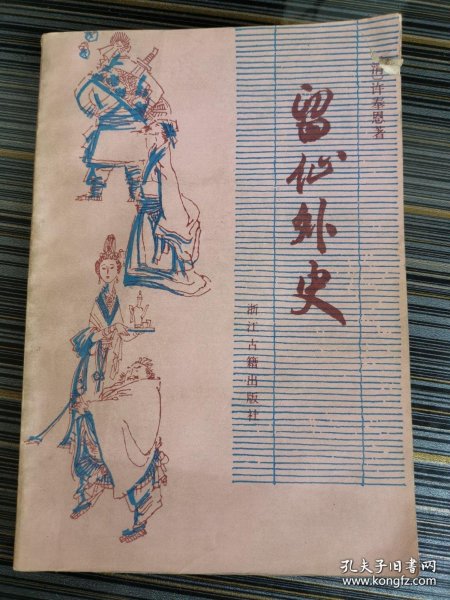 清许奉恩著
留仙外史
浙江古籍出版社
孔夫子旧书网
www.kongfz.com